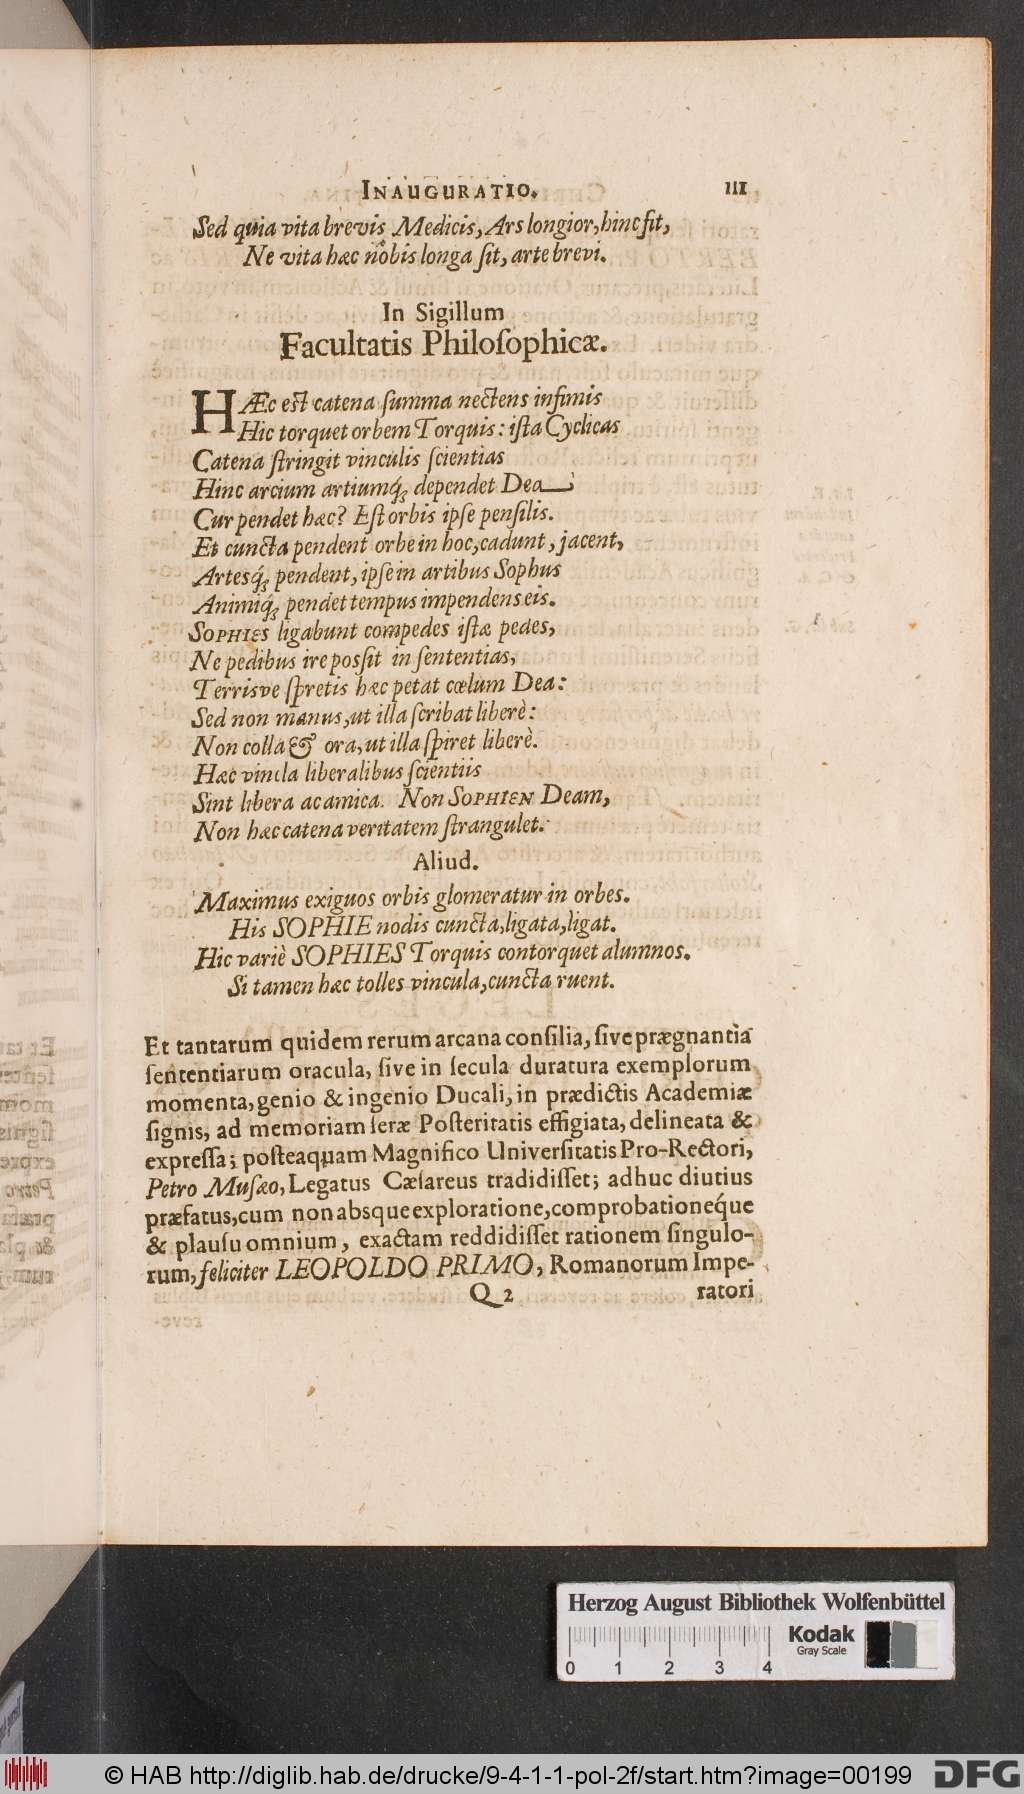 INAUGURATIO. 111
Sed quia vita brevis Medicis, Ars longior, hinc fit,
Ne vita hæc nobis longa sit, arte brevi.
In Sigillum
Facultatis Philoſophicæ.
HÆc eſt catena ſumma nectens infimis
Hic torquet orbem Torquis: iſta Cyclicas
Catena ſtringit vinculis ſcientias
Hinc arcium artiumq́; dependet Dea
Cur pendet hæc? Eſt orbis ipſe penſilis.
Et cuncta pendent orbe in hoc, cadunt, jacent,
Artesq́; pendent, ipſe in artibus Sophus
Animiq́; pendet tempus impendens eis.
SOPHIES ligabunt compedes iſtæ pedes,
Ne pedibus ire poſſit in ſententias,
Terrisve ſpretis hæc petat cœlum Dea:
Sed non manus, ut illa ſcribat liberè:
Non colla & ora, ut illa ſpiret liberè.
Hæc vincla liberalibus ſcientiis
Sint libera ac amica. Non SOPHIEN Deam,
Non hæc catena veritatem ſtrangulet.
Aliud.
Maximus exiguos orbis glomeratur in orbes.
His SOPHIE nodis cuncta, ligata, ligat.
Hic variè SOPHIES Torquis contorquet alumnos.
Si tamen hæc tolles vincula, cuncta ruent.
Et tantarum quidem rerum arcana conſilia, ſive prægnantia
ſententiarum oracula, ſive in ſecula duratura exemplorum
momenta, genio & ingenio Ducali, in prædictis Academiæ
ſignis, ad memoriam ſeræ Poſteritatis effigiata, delineata &
expreſſa; poſteaquam Magnifico Univerſitatis Pro-Rectori,
Petro Muſæo, Legatus Cæſareus tradidiſſet; adhuc diutius
præfatus, cum non absque exploratione, comprobationeq́ue
& plauſu omnium, exactam reddidiſſet rationem ſingulo-
rum, feliciter LEOPOLDO PRIMO, Romanorum Impe-
Q 2 ratori
Herzog August Bibliothek Wolfenbüttel
Kodak
Gray Scale
0 1 2 3 4
© HAB http://diglib.hab.de/drucke/9-4-1-1-pol-2f/start.htm?image=00199
DFG